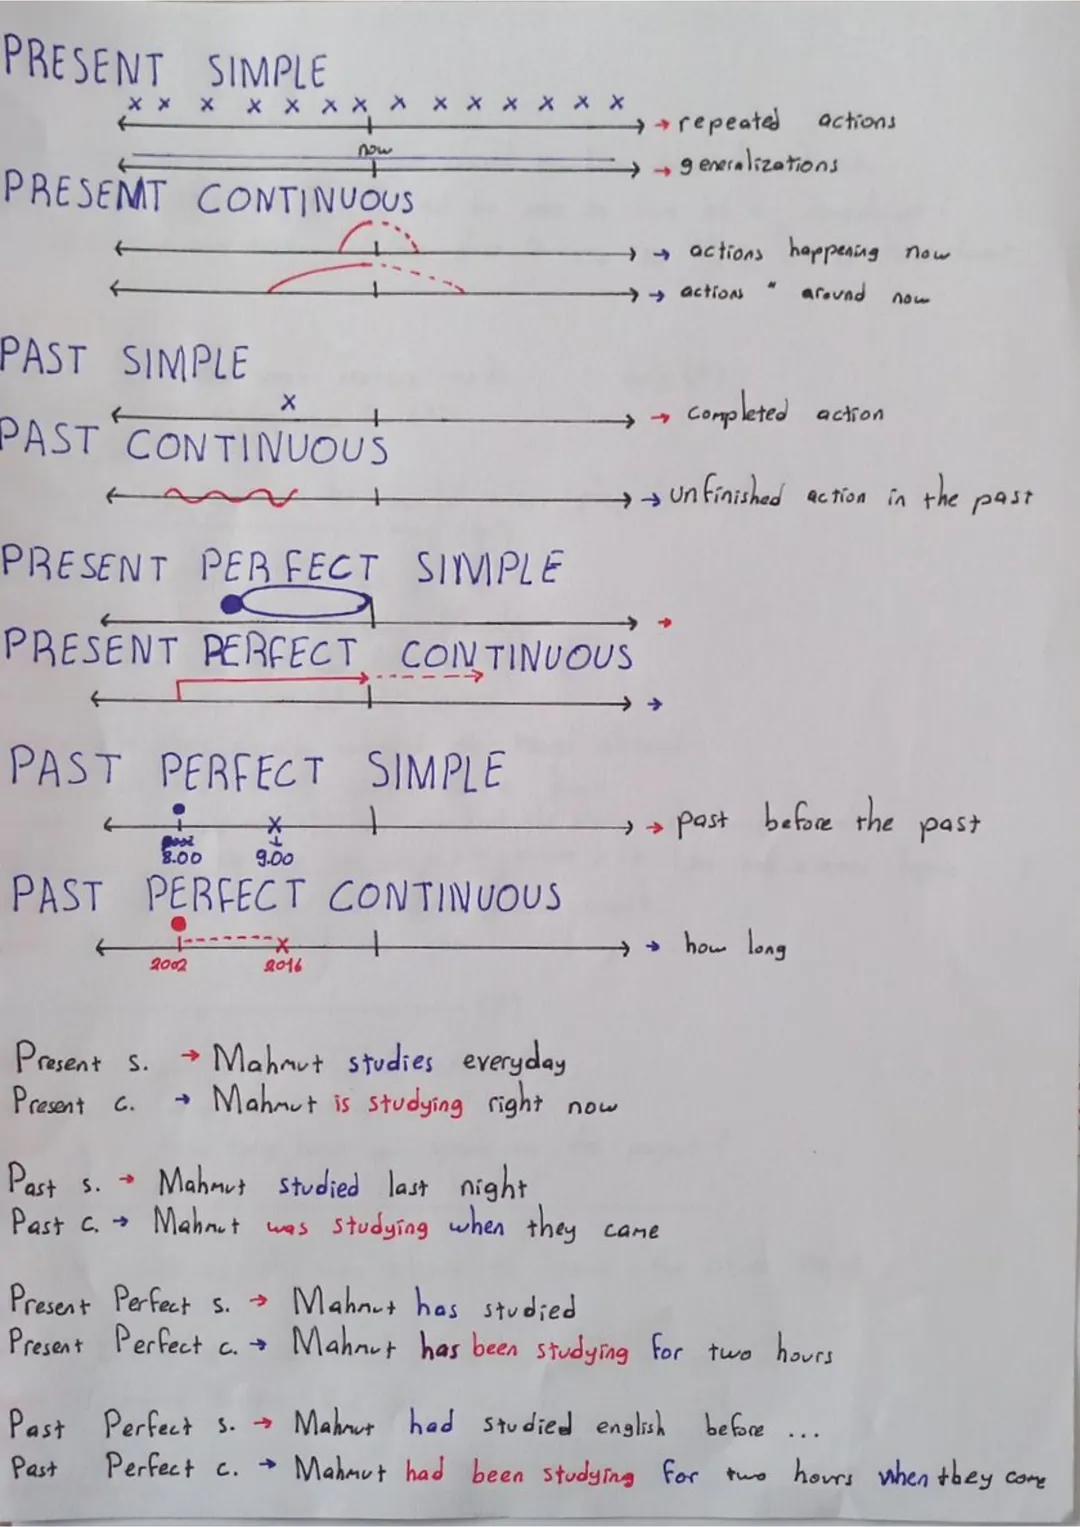 PRESENT SIMPLE
x x x x x x x x x x x x x x
→ repeated actions
now
→ generalizations
PRESENT CONTINUOUS
→ actions happening now
→ actions " around now
PAST SIMPLE
x
→ completed action
PAST CONTINUOUS
→ unfinished action in the past
PRESENT PERFECT SIMPLE
→
PRESENT PERFECT CONTINUOUS
→
PAST PERFECT SIMPLE
x → past before the past
8.00 9.00
PAST PERFECT CONTINUOUS
x → how long
2002 2016
Present s. → Mahmut studies everyday
Present c. → Mahmut is studying right now
Past s. → Mahmut studied last night
Past c. → Mahmut was studying when they came
Present Perfect s. → Mahmut has studied
Present Perfect c. → Mahmut has been studying for two hours
Past Perfect s. → Mahmut had studied english before ...
Past Perfect c. → Mahmut had been studying for two hours when they come